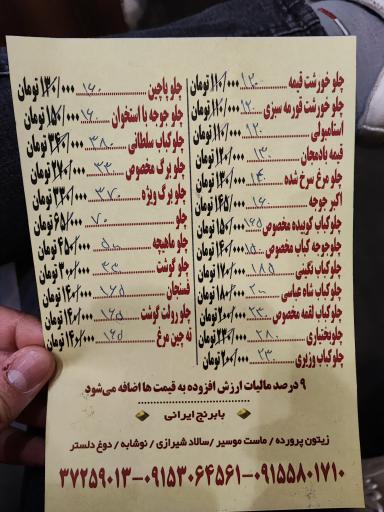 چلو خورشت قیمه ۱۲۰ ۱۱۰/۰۰۰ تومان
چلو خورشت قورمه سبزی ۱۲۰ ۱۱۰/۰۰۰ تومان
استامبولی ۱۲۰ ۱۱۰/۰۰۰ تومان
قیمه بادمجان ۱۳۰ ۱۲۰/۰۰۰ تومان
چلو مرغ سرخ شده ۱۴۰ ۱۳۰/۰۰۰ تومان
اکبر جوجه ۱۶۰ ۱۴۵/۰۰۰ تومان
چلو کباب کوبیده مخصوص ۱۶۵ ۱۵۰/۰۰۰ تومان
چلو جوجه کباب مخصوص ۱۵۰ ۱۴۰/۰۰۰ تومان
چلو کباب نگینی ۱۸۵ ۱۷۰/۰۰۰ تومان
چلو کباب شاه عباسی ۲۰۰ ۱۸۰/۰۰۰ تومان
چلو کباب لقمه مخصوص ۲۳۰ ۲۰۰/۰۰۰ تومان
چلوبختیاری ۲۸۰ تومان
چلو کباب وزیری ۲۳ ۲۰۰/۰۰۰ تومان
چلو پاچین ۱۶۰ ۱۳۰/۰۰۰ تومان
چلو جوجه با استخوان ۱۶۰ ۱۵۰/۰۰۰ تومان
چلو کباب سلطانی ۳۸۰ تومان
چلو برگ مخصوص ۳۳۰ ۲۷۰/۰۰۰ تومان
چلو برگ ویژه ۳۷۰ ۳۳۰/۰۰۰ تومان
چلو ۷۰ ۶۵/۰۰۰ تومان
چلو ماهیچه ۵۰۰ ۴۵۰/۰۰۰ تومان
چلو گوشت ۳۳۰ ۳۰۰/۰۰۰ تومان
فسنجان ۱۶۵ ۱۴۰/۰۰۰ تومان
چلو رولت گوشت ۱۶۵ ۱۴۰/۰۰۰ تومان
ته چین مرغ ۱۶۵ ۱۴۰/۰۰۰ تومان
۹ درصد مالیات ارزش افزوده به قیمت ها اضافه می‌شود
با برنج ایرانی
زیتون پرورده / ماست موسیر / سالاد شیرازی / نوشابه / دوغ دلستر
۳۷۲۵۹۰۱۳-۰۹۱۵۳۰۶۴۵۶۱-۰۹۱۵۵۸۰۱۷۱۰